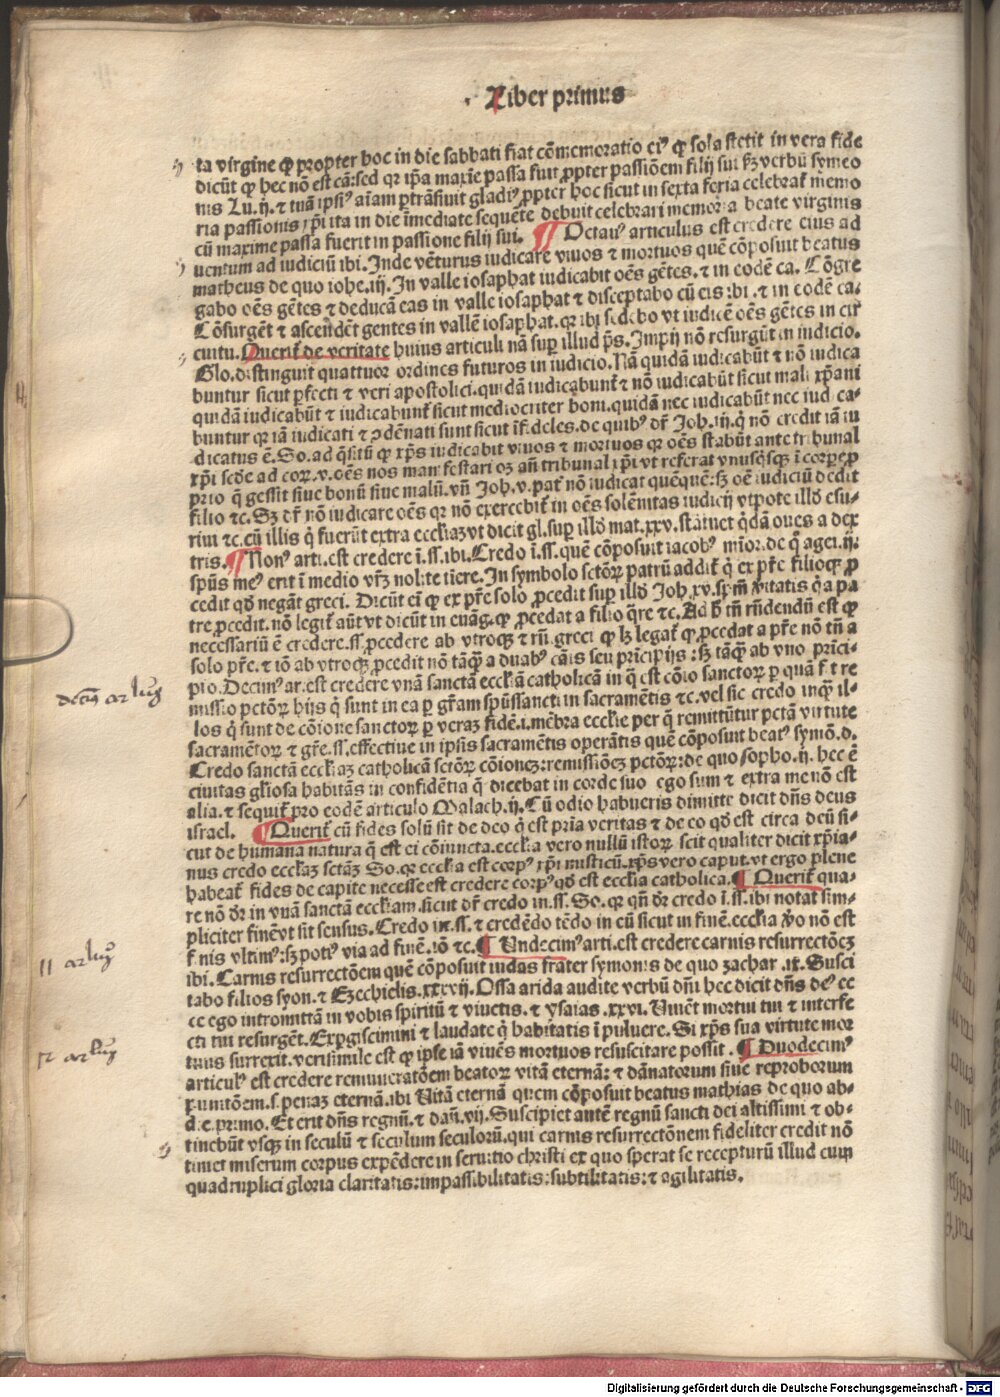 Liber primus
ta virgine ꝙ propter hoc in die sabbati fiat cōmemoratio eiꝰ ꝙ sola stetit in vera fide
dicūt ꝙ hec nō est cā: sed qꝛ ip̄a maxīe passa fuit ꝓpter passiōem filij sui ẜm verbū symeo
nis Lu. ij. ⁊ tuā ipsiꝰ aīam ꝑtrāsiuit gladiꝰ ꝓpter hoc sicut in sexta feria celebrat̄ memo
ria passionis xp̄i ita in die īmediate sequēte debuit celebrari memoria beate virginis
cū maxime passa fuerit in passione filij sui. ¶ Octauꝰ articulus est credere eius ad
uentum ad iudiciū ibi. Inde vēturus iudicare viuos ⁊ mortuos quē cōposuit beatus
matheus de quo iohe. iij. In valle iosaphat iudicabit oēs gētes. ⁊ in eodē ca. Cōgre
gabo oēs gētes ⁊ deducā eas in valle iosaphat ⁊ disceptabo cū eis ibi. ⁊ in eodē ca.
Cōsurgēt ⁊ ascendēt gentes in vallē iosaphat. qꝛ ibi sedebo vt iudicē oēs gētes in cir
cuitu. Querit̄ de veritate huius articuli nā suꝑ illud p̄s. Impij nō resurgūt in iudicio.
Glo. distinguit quattuor ordines futuros in iudicio. Nā quidā iudicabūt ⁊ nō iudica
buntur sicut ꝑfecti ⁊ veri apostolici. quidā iudicabunt̄ ⁊ nō iudicabūt sicut mali xp̄iani
quidā iudicabūt ⁊ iudicabunt̄ sicut mediocriter boni. quidā nec iudicabūt nec iudica-
buntur qꝛ iā iudicati ⁊ ꝯdēnati sunt sicut īfideles. de quibꝰ dr̄ Joh. iij. q̇ nō credit iā iu
dicatus ē. So. ad q̄sitū ꝙ xp̄s iudicabit viuos ⁊ mortuos qꝛ oēs stabūt ante tribunal
xp̄i scd̄e ad coꝝ. v. oēs nos manifestari oꝫ añ tribunal xp̄i vt referat vnusq̇sqꝫ ī corꝑe ꝓ
prio q̄ gessit siue bonū siue malū. vñ Joh. v. pat̄ nō iudicat quēquē: sꝫ oē iudiciū dedit
filio ⁊c. Sꝫ dr̄ nō iudicare oēs qꝛ nō exercebit̄ in oēs solēnitas iudicij vtpote illd̄ esu-
riui ⁊c. cū illis q̇ fuerūt extra eccl̄iaꝫ vt dicit gl. suꝑ illd̄ mat. xxv. statuet q̇dā oues a dex
tris. ¶ Nonꝰ arti. est credere ī. ss. ibi. Credo ī. ss. quē cōposuit iacobꝰ mīor. de q̊ agei. ij.
spūs meꝰ erit ī medio vr̄m nolite tīere. In symbolo sctōꝝ patrū addit̄ q̇ ex pr̄e filioqꝫ ꝓ
cedit qd̄ negāt greci. Dicūt eī ꝙ ex pr̄e solo ꝓcedit suꝑ illd̄ Joh. xv. sp̄m v̄itatis q̇ a pa
tre ꝓcedit. nō legit̄ aūt vt dicūt in euāg. ꝙ ꝓcedat a filio q̄re ⁊c. Ad h̄ tn̄ rn̄dendū est ꝙ
necessariū ē credere. ss. ꝓcedere ab vtroqꝫ ⁊ rn̄. greci ꝙ lꝫ legat̄ ꝙ ꝓcedat a pr̄e nō tn̄ a
solo pr̄e. ⁊ iō ab vtroqꝫ ꝓcedit nō tāq̄ a duabꝰ cāis seu prīcipijs: sꝫ tāq̄ ab vno prīci-
pio. Decimꝰ ar. est credere vnā sanctā eccl̄iā catholicā in q̄ est cōio sanctoꝝ ꝑ quā fit re
missio pctōꝝ hijs q̇ sunt in ea ꝑ gr̄am spūssancti in sacramētis ⁊c. vel sic credo inqꝫ il-
los q̇ sunt de cōione sanctoꝝ ꝑ veraꝫ fidē. i. mēbra eccl̄ie per q̄ remittūtur pctā virtute
sacramētoꝝ ⁊ gr̄e. ss. effectiue in ipsis sacramētis operātis quē cōposuit beatꝰ symō. d.
Credo sanctā eccl̄iaꝫ catholicā sctōꝝ cōioneꝫ: remissiōeꝫ pctōꝝ: de quo sopho. ij. hec ē
ciuitas gl̄iosa habitās in confidētia q̄ dicebat in corde suo ego sum ⁊ extra me nō est
alia. ⁊ sequit̄ pro eodē articulo Malach. ij. Cū odio habueris dimitte dicit dn̄s deus
israel. ¶ Querit̄ cū fides solū sit de deo q̇ est pria veritas ⁊ de eo qd̄ est circa deū si-
cut de humana natura q̄ est ei cōiuncta. eccl̄ia vero nullū istoꝝ scit qualiter dicit xp̄ia-
nus credo eccl̄iaꝫ sctāꝫ So. qꝛ eccl̄ia est corpꝰ xp̄i misticū. xp̄s vero caput. vt ergo plene
habeat̄ fides de capite necesse est credere corpꝰ qd̄ est eccl̄ia catholica. ¶ Querit̄ qua-
re nō dr̄ in vnā sanctā eccl̄iam. sicut dr̄ credo in. ss. So. qꝛ qn̄ dr̄ credo ī. ss. ibi notat̄ sim-
pliciter finē vt sit sensus. Credo in. ss. ⁊ credēdo tēdo in eū sicut in finē. eccl̄ia v̄o nō est
finis vltimꝰ: sꝫ potiꝰ via ad finē. iō ⁊c. ¶ Undecimꝰ arti. est credere carnis resurrectōeꝫ
ibi. Carnis resurrectōem quē cōposuit iudas frater symonis de quo zachar. ix. Susci
tabo filios syon. ⁊ Ezechielis. xxxvij. Ossa arida audite verbū dn̄i hec dicit dn̄s deꝰ ec
ce ego intromittā in vobis spiritū ⁊ viuetis. ⁊ ysaias. xxvi. Uiuēt mortui tui ⁊ interfe
cti tui resurgēt. Exꝑgiscimini ⁊ laudate q̇ habitatis ī puluere. Si xp̄s sua virtute mor
tuus surrexit. verisimile est ꝙ ipse iā viuēs mortuos resuscitare possit. ¶ Duodecimꝰ
articulꝰ est credere remuneratōem beatoꝝ vitā eternā: ⁊ dānatorum siue reproborum
punitōem. s. penaꝫ eternā. ibi Uitā eternā quem cōposuit beatus mathias de quo ab-
die. primo. Et erit dn̄s regnū. ⁊ dañ. vij. Suscipiet autē regnū sancti dei altissimi ⁊ ob-
tinebūt vsqꝫ in seculū ⁊ seculum seculorū. qui carnis resurrectōnem fideliter credit nō
timet miserum corpus expēdere in seruitio christi ex quo sperat se recepturū illud cum
quadruplici gloria claritatis: impassibilitatis: subtilitatis: ⁊ agilitatis.
11 ar
12 ar
Digitalisierung gefördert durch die Deutsche Forschungsgemeinschaft - DFG